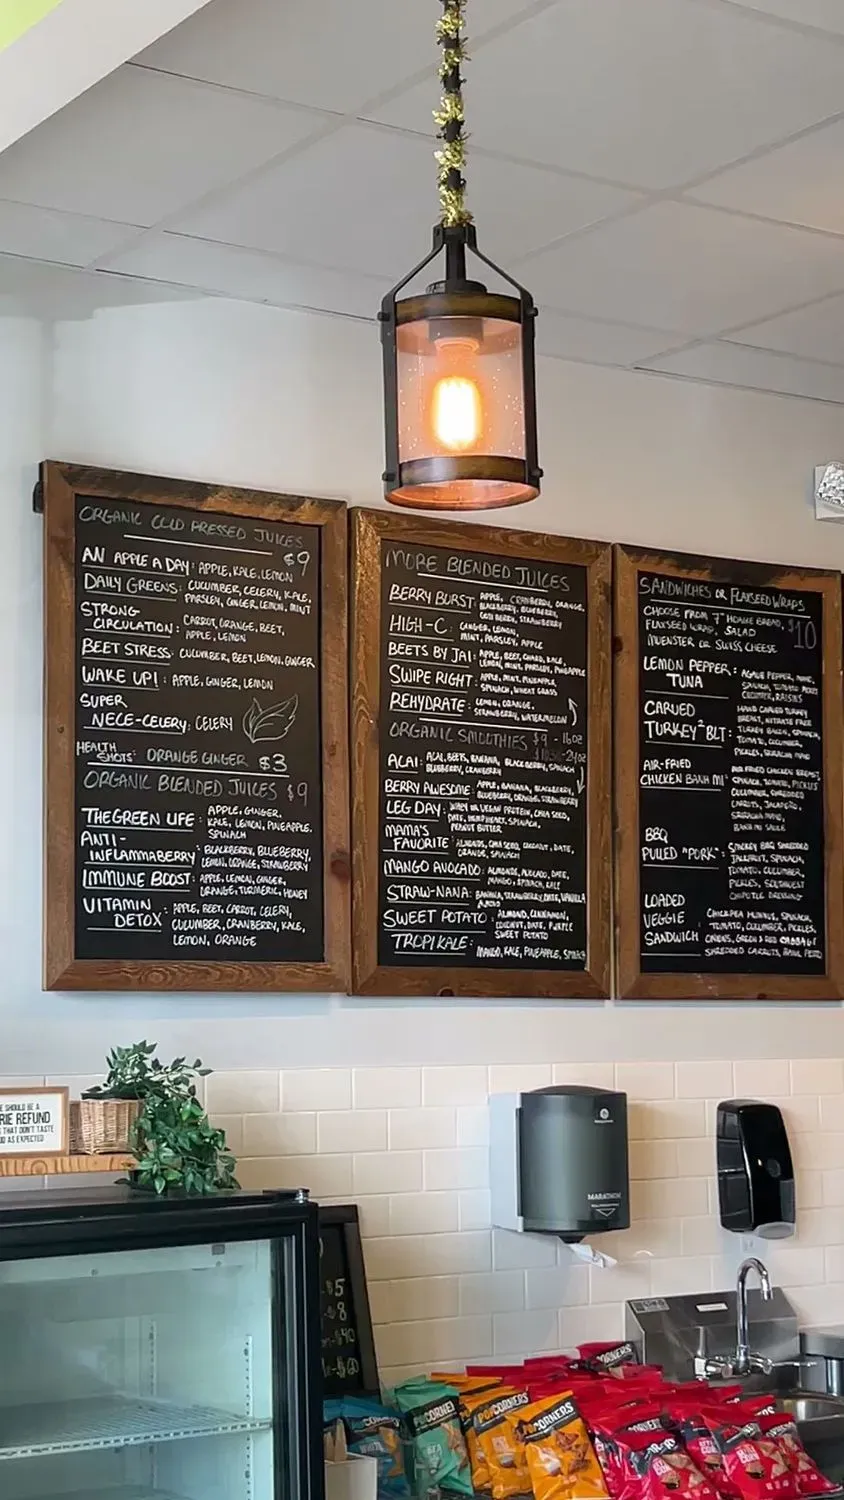 ORGANIC COLD PRESSED JUICES
$9
AN APPLE A DAY: APPLE, KALE, LEMON
DAILY GREENS: CUCUMBER, CELERY, KALE,
PARSLEY, GINGER, LEMON, MINT
STRONG
CIRCULATION: CARROT, ORANGE, BEET,
APPLE, LEMON
BEET STRESS: CUCUMBER, BEET, LEMON, GINGER
WAKE UP!: APPLE, GINGER, LEMON
SUPER
NECE-CELERY: CELERY
HEALTH
SHOTS: ORANGE GINGER $3
ORGANIC BLENDED JUICES $9
THE GREEN LIFE: APPLE, GINGER,
KALE, LEMON, PINEAPPLE,
SPINACH
ANTI-
INFLAMMABERRY: BLACKBERRY, BLUEBERRY,
LEMON, ORANGE, STRAWBERRY
IMMUNE BOOST: APPLE, LEMON, GINGER,
ORANGE, TURMERIC, HONEY
VITAMIN
DETOX: APPLE, BEET, CARROT, CELERY,
CUCUMBER, CRANBERRY, KALE,
LEMON, ORANGE
MORE BLENDED JUICES
BERRY BURST: APPLE, CRANBERRY, ORANGE,
BLACKBERRY, BLUEBERRY,
STRAWBERRY
HIGH-C: GINGER, LEMON,
MINT, PARSLEY, APPLE
BEETS BY JAI: APPLE, BEET, CHARD, KALE,
LEMON, MINT, PARSLEY, PINEAPPLE
SWIPE RIGHT: APPLE, MINT, PINEAPPLE,
SPINACH, WHEAT GRASS
REHYDRATE: LEMON, ORANGE,
STRAWBERRY, WATERMELON
ORGANIC SMOOTHIES $9 - 16oz
24oz
ACAI: ACAI, BEETS, BANANA, BLACKBERRY, SPINACH,
BLUEBERRY, CRANBERRY
BERRY AWESOME: APPLE, BANANA, BLACKBERRY,
BLUEBERRY, ORANGE, STRAWBERRY
LEG DAY: WHEY OR VEGAN PROTEIN, CHIA SEED,
DATE, HEMPHEART, SPINACH,
PEANUT BUTTER
MAMA'S
FAVORITE: ALMONDS, CHIA SEED, COCONUT, DATE,
ORANGE, SPINACH
MANGO AVOCADO: ALMONDS, AVOCADO, DATE,
MANGO, SPINACH, KALE
STRAW-NANA: BANANA, STRAWBERRY, DATE, VANILLA
ALMOND
SWEET POTATO: ALMOND, CINNAMON,
COCONUT, DATE, PURPLE
SWEET POTATO
TROPIKALE: MANGO, KALE, PINEAPPLE, SPINACH
SANDWICHES OR FLAXSEED WRAPS
CHOOSE FROM 7" HOAGIE BREAD,
FLAXSEED WRAP, SALAD
MUENSTER OR SWISS CHEESE
$10
LEMON PEPPER
TUNA: PEPPER,
SPINACH, TOMATO
CUCUMBER, RAISINS
CARVED
TURKEY² BLT: HAND CARVED TURKEY
BREAST, NITRATE FREE
TURKEY BACON, SPINACH,
TOMATO, CUCUMBER,
PICKLES, SRIRACHA MAYO
AIR-FRIED
CHICKEN BANH MI: AIR FRIED CHICKEN BREAST,
SPINACH, TOMATO, PICKLES
CUCUMBER, SHREDDED
CARROTS, JALAPEÑO,
SRIRACHA MAYO,
BANH MI SAUCE
BBQ
PULLED "PORK": SMOKEY BBQ SHREDDED
JACKFRUIT, SPINACH,
TOMATO, CUCUMBER,
PICKLES, SOUTHWEST
CHIPOTLE DRESSING
LOADED
VEGGIE
SANDWICH CHICKPEA HUMMUS, SPINACH,
TOMATO, CUCUMBER, PICKLES,
ONIONS, GREEN & RED CABBAGE
SHREDDED CARROTS, BASIL PESTO
E SHOULD BE A
RIE REFUND
THAT DON'T TASTE
D AS EXPECTED
MARATHON
$5
8
$40
POPCORNERS